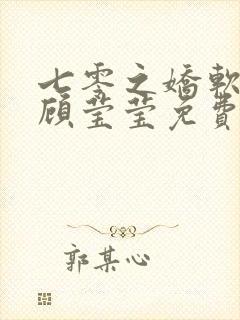 七零之嬌軟
顧瑩瑩免費
郭某心